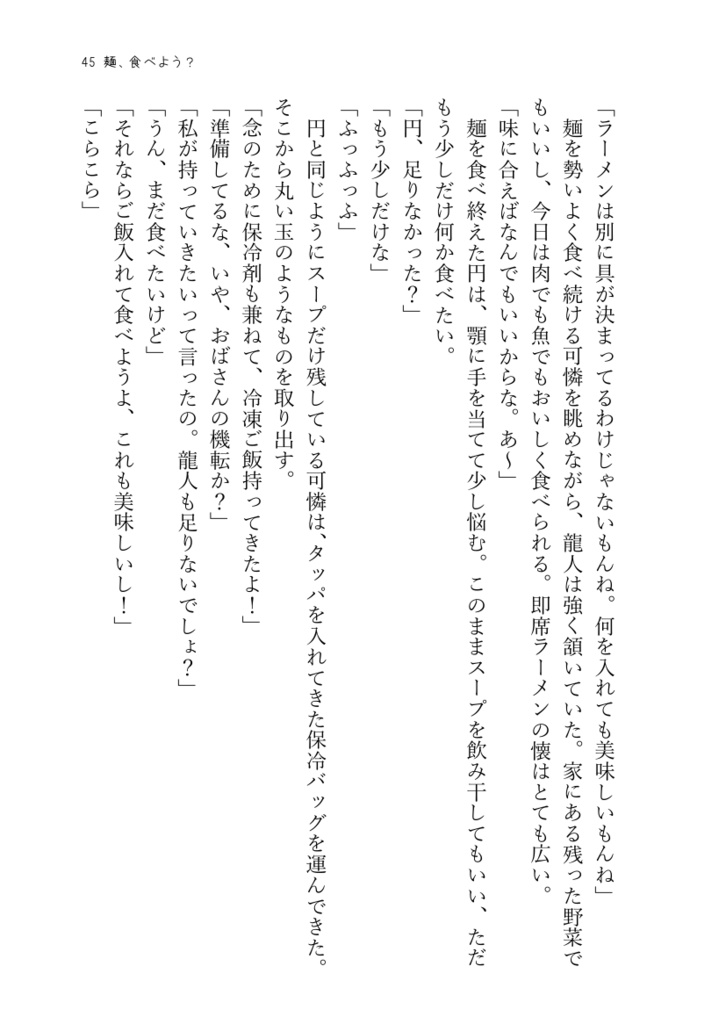 45 麺、食べよう？
「ラーメンは別に具が決まってるわけじゃないもんね。何を入れても美味しいもんね」
　麺を勢いよく食べ続ける可憐を眺めながら、龍人は強く頷いていた。家にある残った野菜で
もいいし、今日は肉でも魚でもおいしく食べられる。即席ラーメンの懐はとても広い。
「味に合えばなんでもいいからな。あ〜」
　麺を食べ終えた円は、顎に手を当てて少し悩む。このままスープを飲み干してもいい、ただ
もう少しだけ何か食べたい。
「円、足りなかった？」
「もう少しだけな」
「ふっふっふ」
　円と同じようにスープだけ残している可憐は、タッパを入れてきた保冷バッグを運んできた。
そこから丸い玉のようなものを取り出す。
「念のために保冷剤も兼ねて、冷凍ご飯持ってきたよ！」
「準備してるな、いや、おばさんの機転か？」
「私が持っていきたいって言ったの。龍人も足りないでしょ？」
「うん、まだ食べたいけど」
「それならご飯入れて食べようよ、これも美味しいし！」
「こらこら」